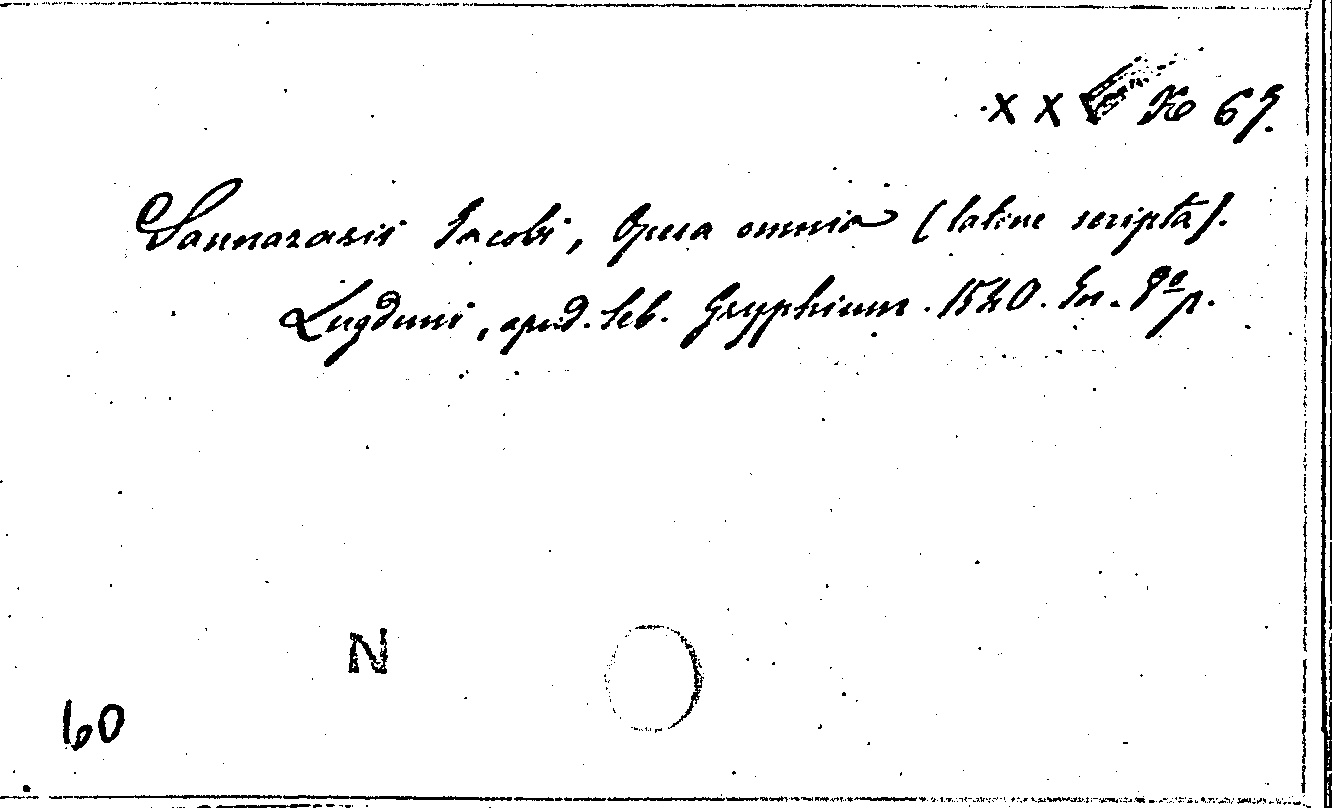 XX Ko 69.
Sannazarii Jacobi, Opera omnia (latine scripta).
Lugduni, apud. Seb. Gryphium. 1540. In. 8º p.
N
60